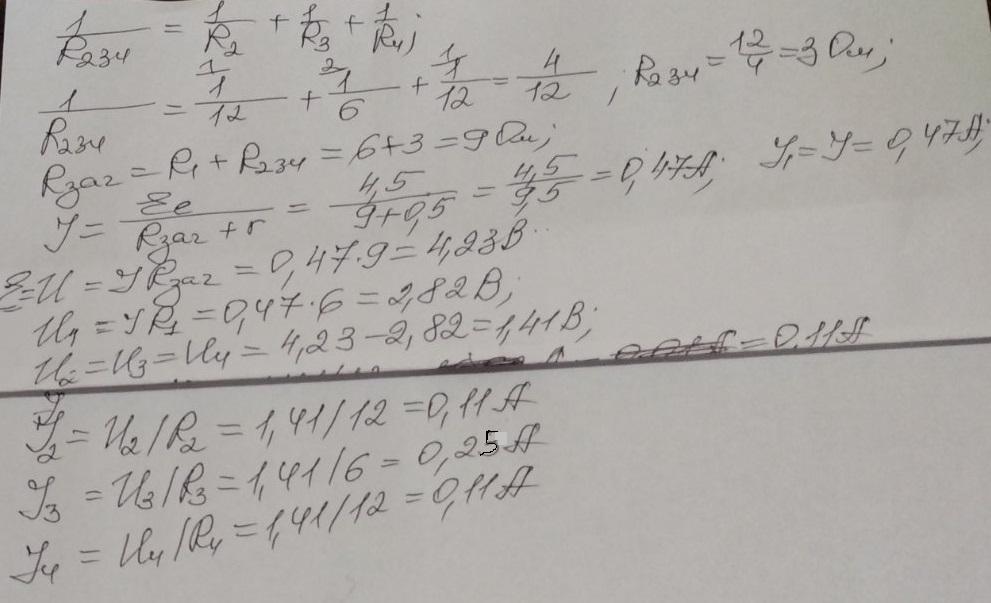 1/R₂₃₄ = 1/R₂ + 1/R₃ + 1/R₄;
1/R₂₃₄ = 1/12 + 1/6 + 1/12 = 4/12; R₂₃₄ = 12/4 = 3 Ом;
Rзаг = R₁ + R₂₃₄ = 6+3 = 9 Ом;
I = Ɛe/(Rзаг + r) = 4,5/(9+0,5) = 4,5/9,5 = 0,47A; I₁ = I = 0,47A;
Ɛ=U = I Rзаг = 0,47·9 = 4,23В
U₁ = IR₁ = 0,47·6 = 2,82В;
U₂ = U₃ = U₄ = 4,23 − 2,82 = 1,41В;
= 0.11A
I₂ = U₂/R₂ = 1,41/12 = 0,11A
I₃ = U₃/R₃ = 1,41/6 = 0,25A
I₄ = U₄/R₄ = 1,41/12 = 0,11A